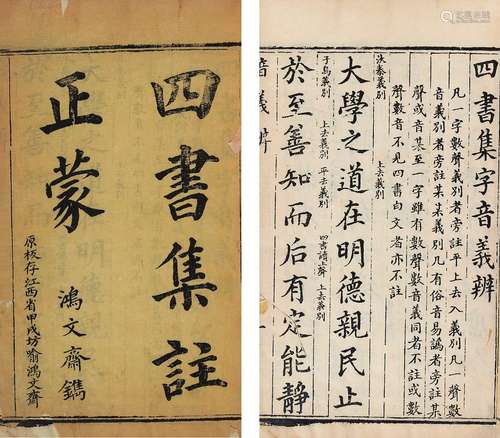 四書集註
正蒙
鴻文齋鐫
原板存江西省甲戌坊喻鴻文齋
四書集字音義辨
凡一字數聲義別者旁註平上去入義別凡一聲數
音義別者旁註某某義別凡有俗音易譌者旁註某
聲或音某至一字雖有數聲數音義同者不註或數
聲數音不見四書白文者亦不註
上去義別
大學之道在明德親民止
汰泰義別
於至善知而后有定能靜
于烏義別
上去義別
平去義別
四書讀上聲
上去義別
音義辨